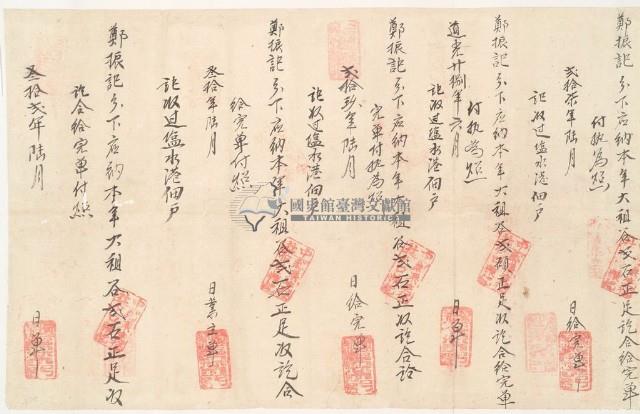 鄭振記名下應納本年大租谷貳石正足訖合給完單
付執為炤
貳拾柒年陸月 日給完單
記收过塩水港佃戶
鄭振記名下應納本年大租谷貳碩正足收訖合給完單
付執為炤
道光廿捌年六月 日單
記收过塩水港佃戶
鄭振記名下應納本年大租谷貳石正收訖合給
完單付執為炤
貳拾玖年陸月 日給完單
記收过塩水港佃戶
鄭振記名下應納本年大租谷貳石正足收訖合
給完單付炤
叁拾年陸月 日業主單
記收过塩水港佃戶
鄭振記名下應納本年大租谷貳石正足收
訖合給完單付炤
叁拾貳年陸月 日單
國史館臺灣文獻館
TAIWAN HISTORICA